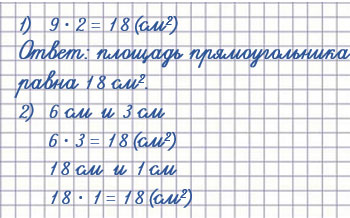 1) 9 · 2 = 18 (см²)
Ответ: площадь прямоугольника
равна 18 см².
2) 6 см и 3 см
6 · 3 = 18 (см²)
18 см и 1 см
18 · 1 = 18 (см²)